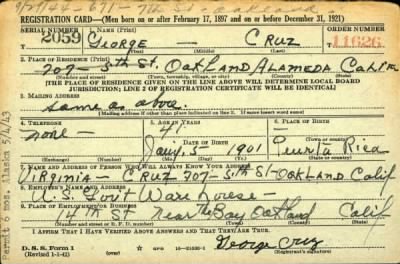 REGISTRATION CARD—(Men born on or after February 17, 1897 and on or before December 31, 1921)
SERIAL NUMBER
1. NAME (Print)
ORDER NUMBER
2059
GEORGE — CRUZ
11626
(First) (Middle) (Last)
2. PLACE OF RESIDENCE (Print)
707 - 5th St. OAKLAND ALAMEDA CALIF
(Number and street) (Town, township, village, or city) (County) (State)
[THE PLACE OF RESIDENCE GIVEN ON THE LINE ABOVE WILL DETERMINE LOCAL BOARD
JURISDICTION; LINE 2 OF REGISTRATION CERTIFICATE WILL BE IDENTICAL]
3. MAILING ADDRESS
Same as above.
[Mailing address if other than place indicated on line 2. If same insert word same]
4. TELEPHONE
5. AGE IN YEARS
6. PLACE OF BIRTH
none —
41
DATE OF BIRTH
(Town or county)
Jan. 5 - 1901
Puerta Rica
(Exchange) (Number)
(Mo.) (Day) (Yr.)
(State or country)
7. NAME AND ADDRESS OF PERSON WHO WILL ALWAYS KNOW YOUR ADDRESS
VIRGINIA — CRUZ 707 - 5th St - OAKLAND Calif
8. EMPLOYER'S NAME AND ADDRESS
U.S. Gov't Warehouse -
9. PLACE OF EMPLOYMENT OR BUSINESS
14th St near the Bay Oakland Calif
(Number and street or R. F. D. number) (Town) (County) (State)
I AFFIRM THAT I HAVE VERIFIED ABOVE ANSWERS AND THAT THEY ARE TRUE.
D. S. S. Form 1
(Revised 1-1-42)
(over)
George Cruz
Permit 6 mos. Alaska 5/4/43